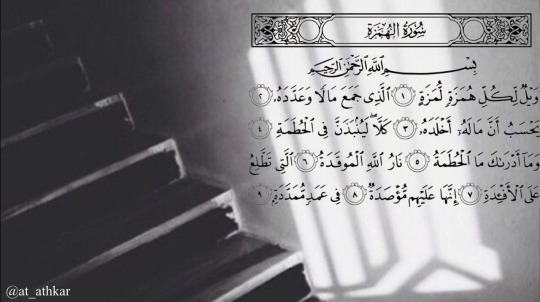 سُورَةُ الهُمَزَةِ
بِسْمِ اللَّهِ الرَّحْمَٰنِ الرَّحِيمِ
وَيْلٌ لِّكُلِّ هُمَزَةٍ لُّمَزَةٍ ١ الَّذِي جَمَعَ مَالًا وَعَدَّدَهُ ٢
يَحْسَبُ أَنَّ مَالَهُ أَخْلَدَهُ ٣ كَلَّا لَيُنبَذَنَّ فِي الْحُطَمَةِ ٤
وَمَا أَدْرَىٰكَ مَا الْحُطَمَةُ ٥ نَارُ اللَّهِ الْمُوقَدَةُ ٦ الَّتِي تَطَّلِعُ
عَلَى الْأَفْئِدَةِ ٧ إِنَّهَا عَلَيْهِم مُّؤْصَدَةٌ ٨ فِي عَمَدٍ مُّمَدَّدَةٍ ٩
@at_athkar